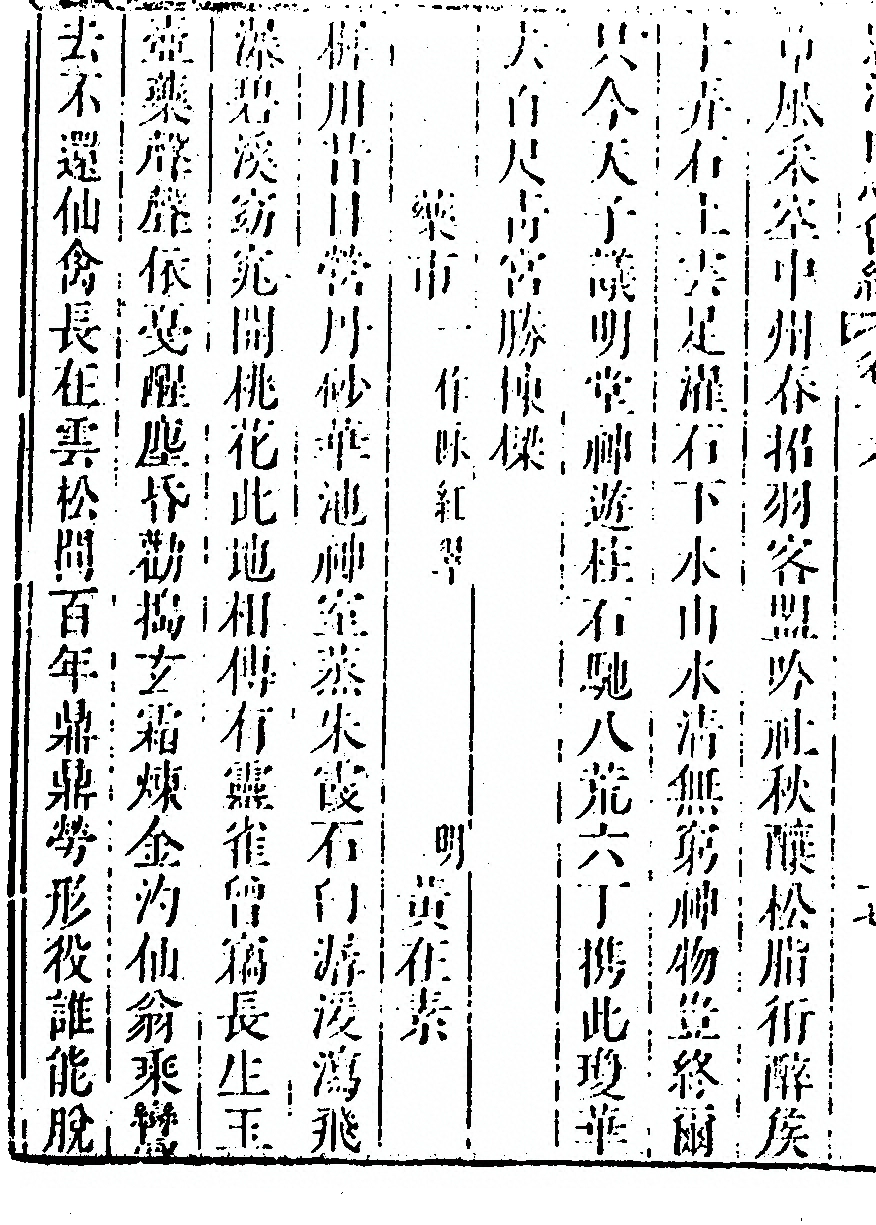 巾風采空中州春招羽客盟吟社秋釀松脂衎醉侯
十弄石上去足濯石下水山水清無窮神物豈終爾
只今天子議明堂神遊柱石馳八荒六丁携此瓊華
去百尺古宮勝棟樑
藥市 一作咏紅翠 明黃在素
川昔日營丹砂華池神室蒸朱霞石臼潺湲瀉飛
深碧溪窈窕開桃花此地相傳有靈雀曾窺長生玉
壺藥聲聲依憂醒塵昏勸搗玄霜煉金汋仙翁乘鸞
去不還仙禽長在雲松間百年鼎鼎勞形役誰能脫